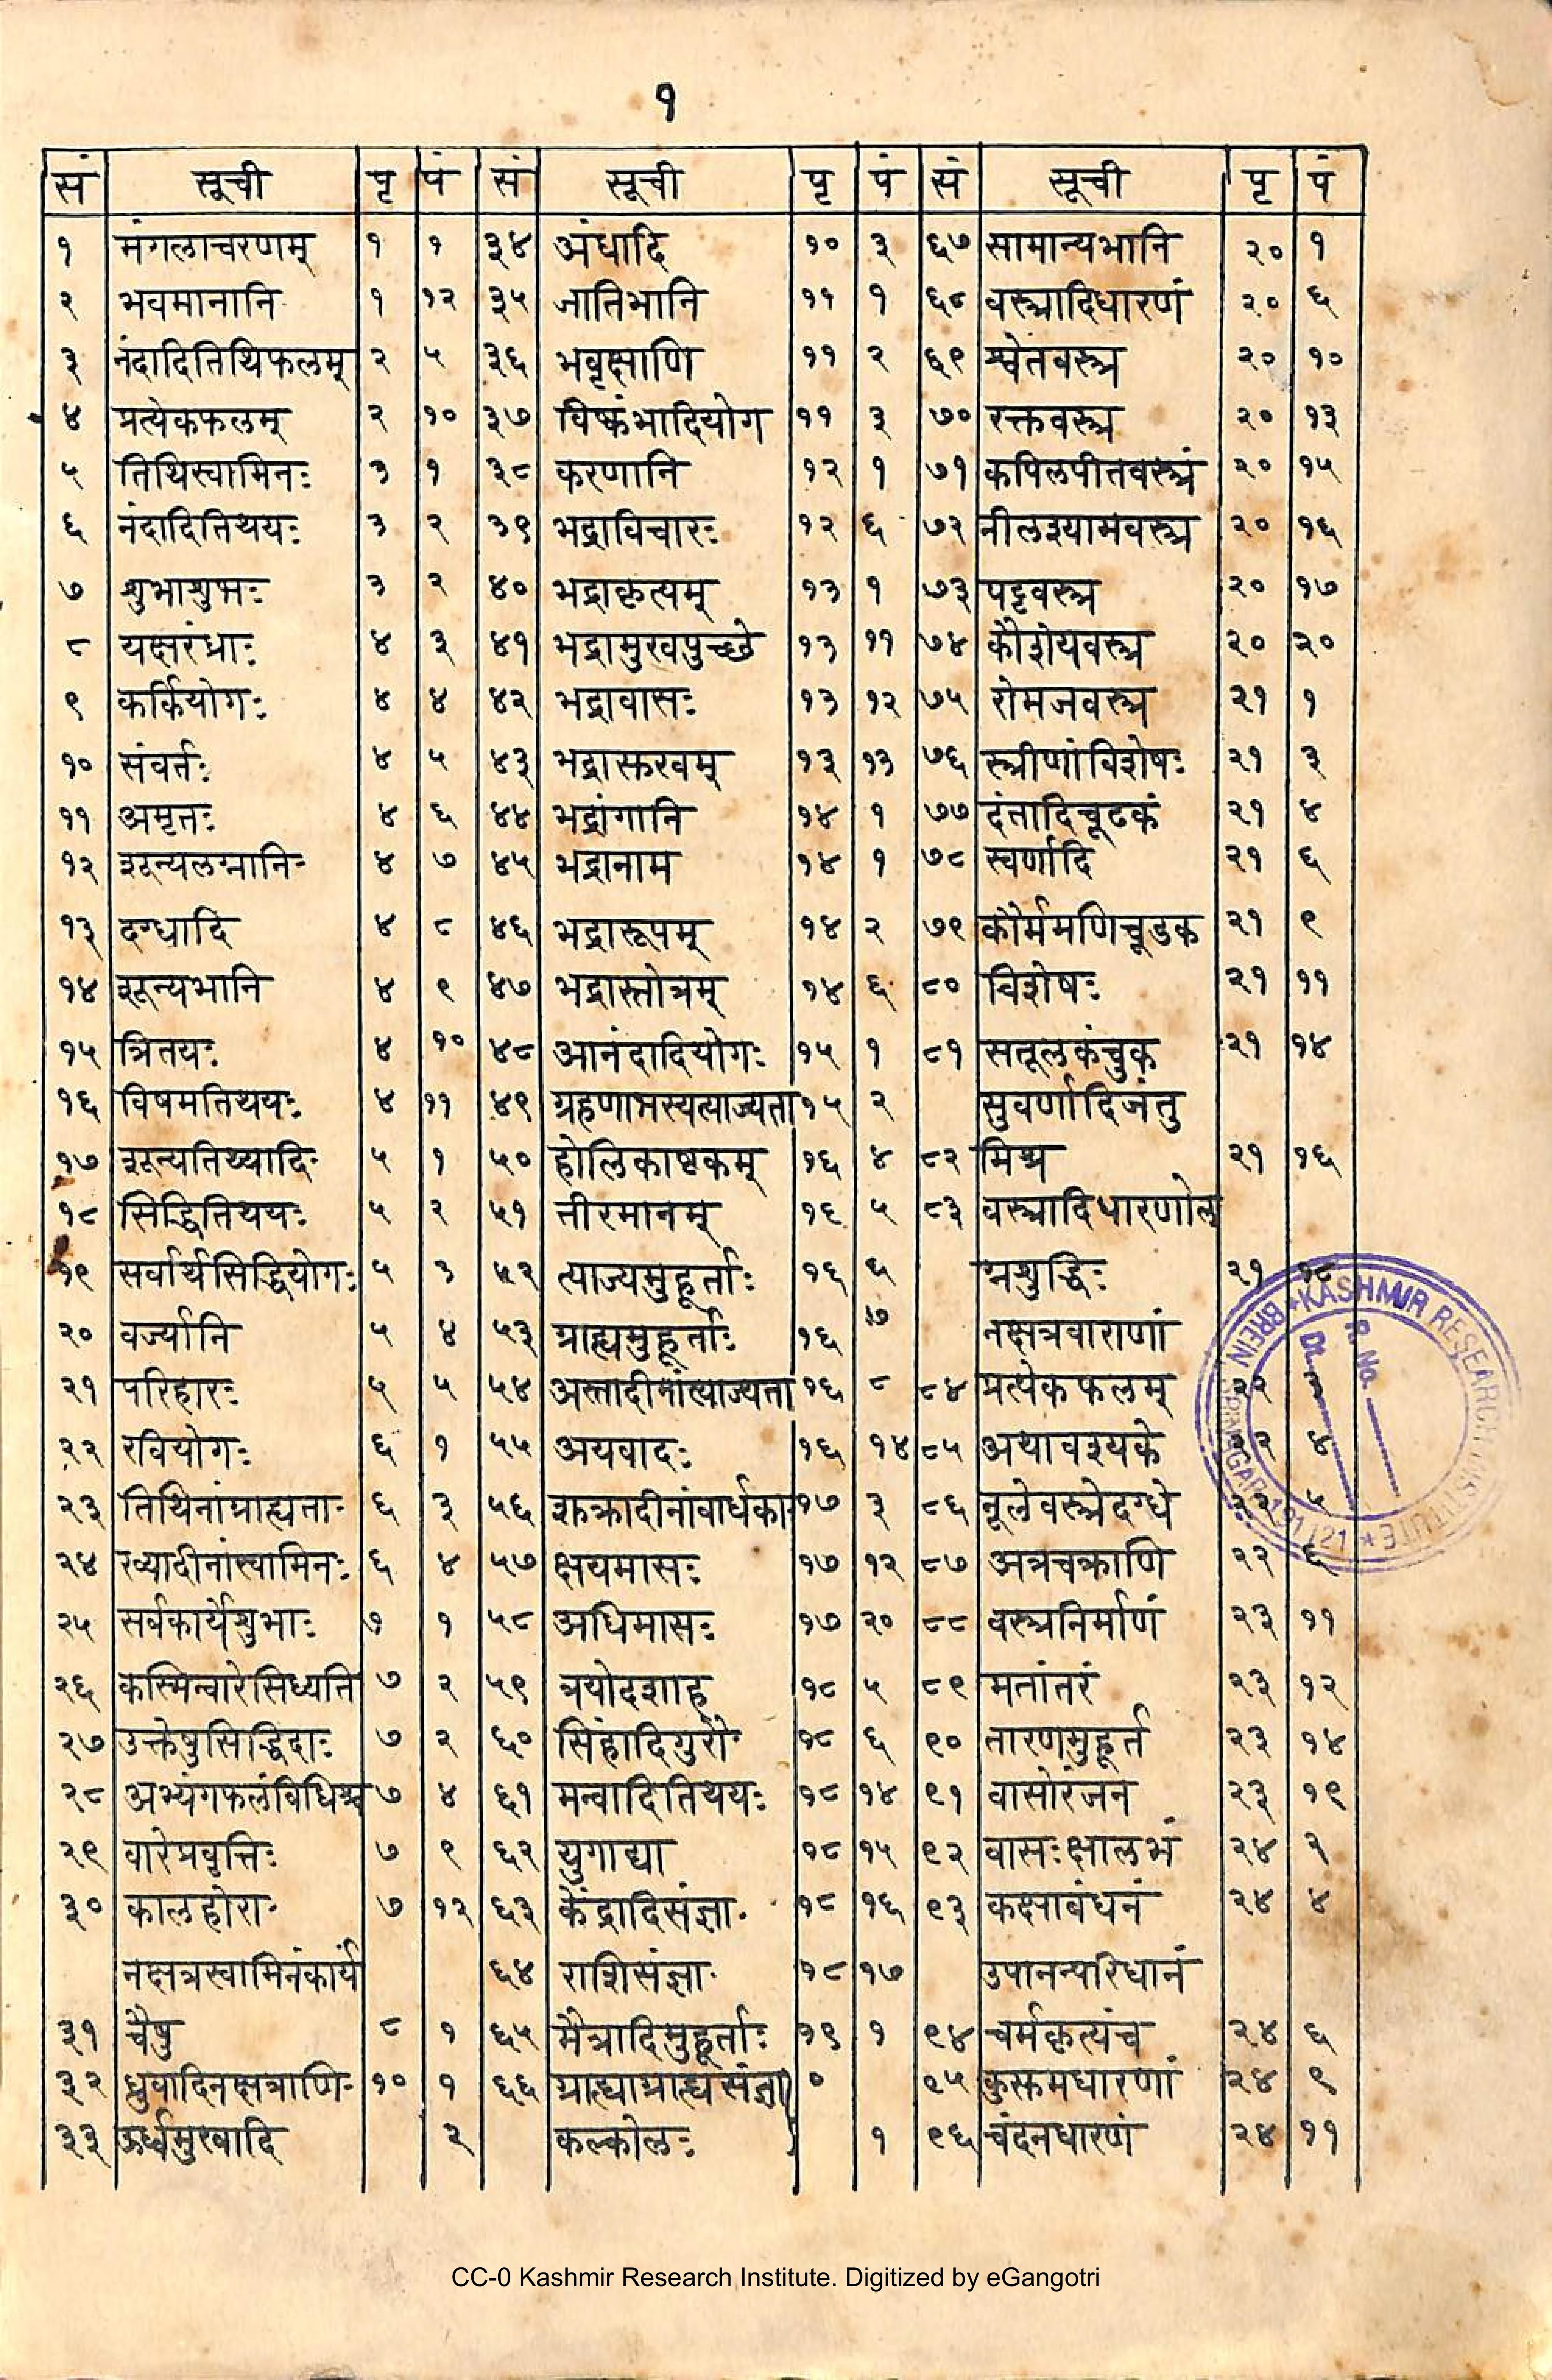 १
सं सूची पृ पं सं सूची पृ पं सं सूची पृ पं
१ मंगलाचरणम् १ १ ३४ अंधादि १० ३ ६७ सामान्यभानि २० १
२ भवमानानि १ १२ ३५ जातिभानि ११ १ ६८ वस्त्रादिधारणं २० ६
३ नंदादितिथिफलम् २ ५ ३६ भवृक्षाणि ११ २ ६९ श्वेतवस्त्र २० १०
४ प्रत्येकफलम् २ १० ३७ विष्कंभादियोग ११ ३ ७० रक्तवस्त्र २० १३
५ तिथिस्वामिनः ३ १ ३८ करणानि १२ १ ७१ कपिलपीतवस्त्रं २० १५
६ नंदादितिथयः ३ २ ३९ भद्राविचारः १२ ६ ७२ नीलश्यामवस्त्र २० १६
७ शुभाशुभः ३ २ ४० भद्राकृत्यम् १३ १ ७३ पट्टवस्त्र २० १७
८ यक्षरंध्राः ४ ३ ४१ भद्रामुखपुच्छे १३ ११ ७४ कौशेयवस्त्र २० २०
९ कर्कियोगः ४ ४ ४२ भद्रावासः १३ १२ ७५ रोमजवस्त्र २१ १
१० संवर्तः ४ ५ ४३ भद्रास्करवम् १३ १३ ७६ स्त्रीणांविशेषः २१ ३
११ अमृतः ४ ६ ४४ भद्रांगानि १४ १ ७७ दंतादिचूटकं २१ ४
१२ शून्यलग्नानि ४ ७ ४५ भद्रानाम १४ १ ७८ स्वर्णादि २१ ६
१३ दग्धादि ४ ८ ४६ भद्रारूपम् १४ २ ७९ कौर्ममणिचूडक २१ ९
१४ शून्यभानि ४ ९ ४७ भद्रास्तोत्रम् १४ ६ ८० विशेषः २१ ११
१५ त्रितयः ४ १० ४८ आनंदादियोगः १५ १ ८१ सतूलकंचुक २१ १४
१६ विषमतिथयः ४ ११ ४९ ग्रहणाभस्यत्याज्यता १५ २ सुवर्णादिजंतु
१७ शून्यतिथ्यादि ५ १ ५० होलिकाष्टकम् १६ ४ ८२ मिश्र २१ १६
१८ सिद्धितिथयः ५ २ ५१ तीरमानम् १६ ५ ८३ वस्त्रादिधारणोल
१९ सर्वार्थसिद्धियोगः ५ ३ ५२ त्याज्यमुहूर्ताः १६ ६ ग्नशुद्धिः २१ १८
२० वर्ज्यानि ५ ४ ५३ ग्राह्यमुहूर्ताः १६ ७ नक्षत्रवाराणां
२१ परिहारः ५ ५ ५४ अस्तादीनांत्याज्यता १६ ८ ८४ प्रत्येकफलम् २२
२२ रवियोगः ६ १ ५५ अयवादः १६ १४ ८५ अथावश्यके २२ ४
२३ तिथिनांग्राह्यता ६ ३ ५६ शुक्रादीनांवार्धका १७ ३ ८६ नूलेवस्त्रेदग्धे २२ ५
२४ रव्यादीनांस्वामिनः ६ ४ ५७ क्षयमासः १७ १२ ८७ अत्रचक्राणि २२ ६
२५ सर्वकार्येशुभाः ७ १ ५८ अधिमासः १७ २० ८८ वस्त्रनिर्माणं २३ ११
२६ कस्मिन्वारेसिध्यति ७ २ ५९ त्रयोदशाह् १८ ५ ८९ मतांतरं २३ १२
२७ उक्तेषुसिद्धिदाः ७ २ ६० सिंहादिगुरौ १८ ६ ९० तारणमुहूर्त २३ १४
२८ अभ्यंगफलंविधिश्च ७ ४ ६१ मन्वादितिथयः १८ १४ ९१ वासोरंजन २३ १९
२९ वारेप्रवृत्तिः ७ ९ ६२ युगाद्या १८ १५ ९२ वासःक्षालभं २४ २
३० कालहोरा ७ १२ ६३ केंद्रादिसंज्ञा १८ १६ ९३ कक्षाबंधनं २४ ४
नक्षत्रस्वामिनंकार्यं ६४ राशिसंज्ञा १८ १७ उपानन्परिधानं
३१ चैषु ८ १ ६५ मैत्रादिमुहूर्ताः १९ १ ९४ चर्मकृत्यंच २४ ६
३२ ध्रुवादिनक्षत्राणि १० १ ६६ ग्राह्याग्राह्यसंज्ञा ० ९५ कुस्कमधारणां २४ ९
३३ ऊर्ध्वमुखादि २ कल्कोलः १ ९६ चंदनधारणं २४ ११
KASHMIR RESEARCH INSTITUTE
BREIN
SRINAGAR 191121
R. No.
Dt.
CC-0 Kashmir Research Institute. Digitized by eGangotri